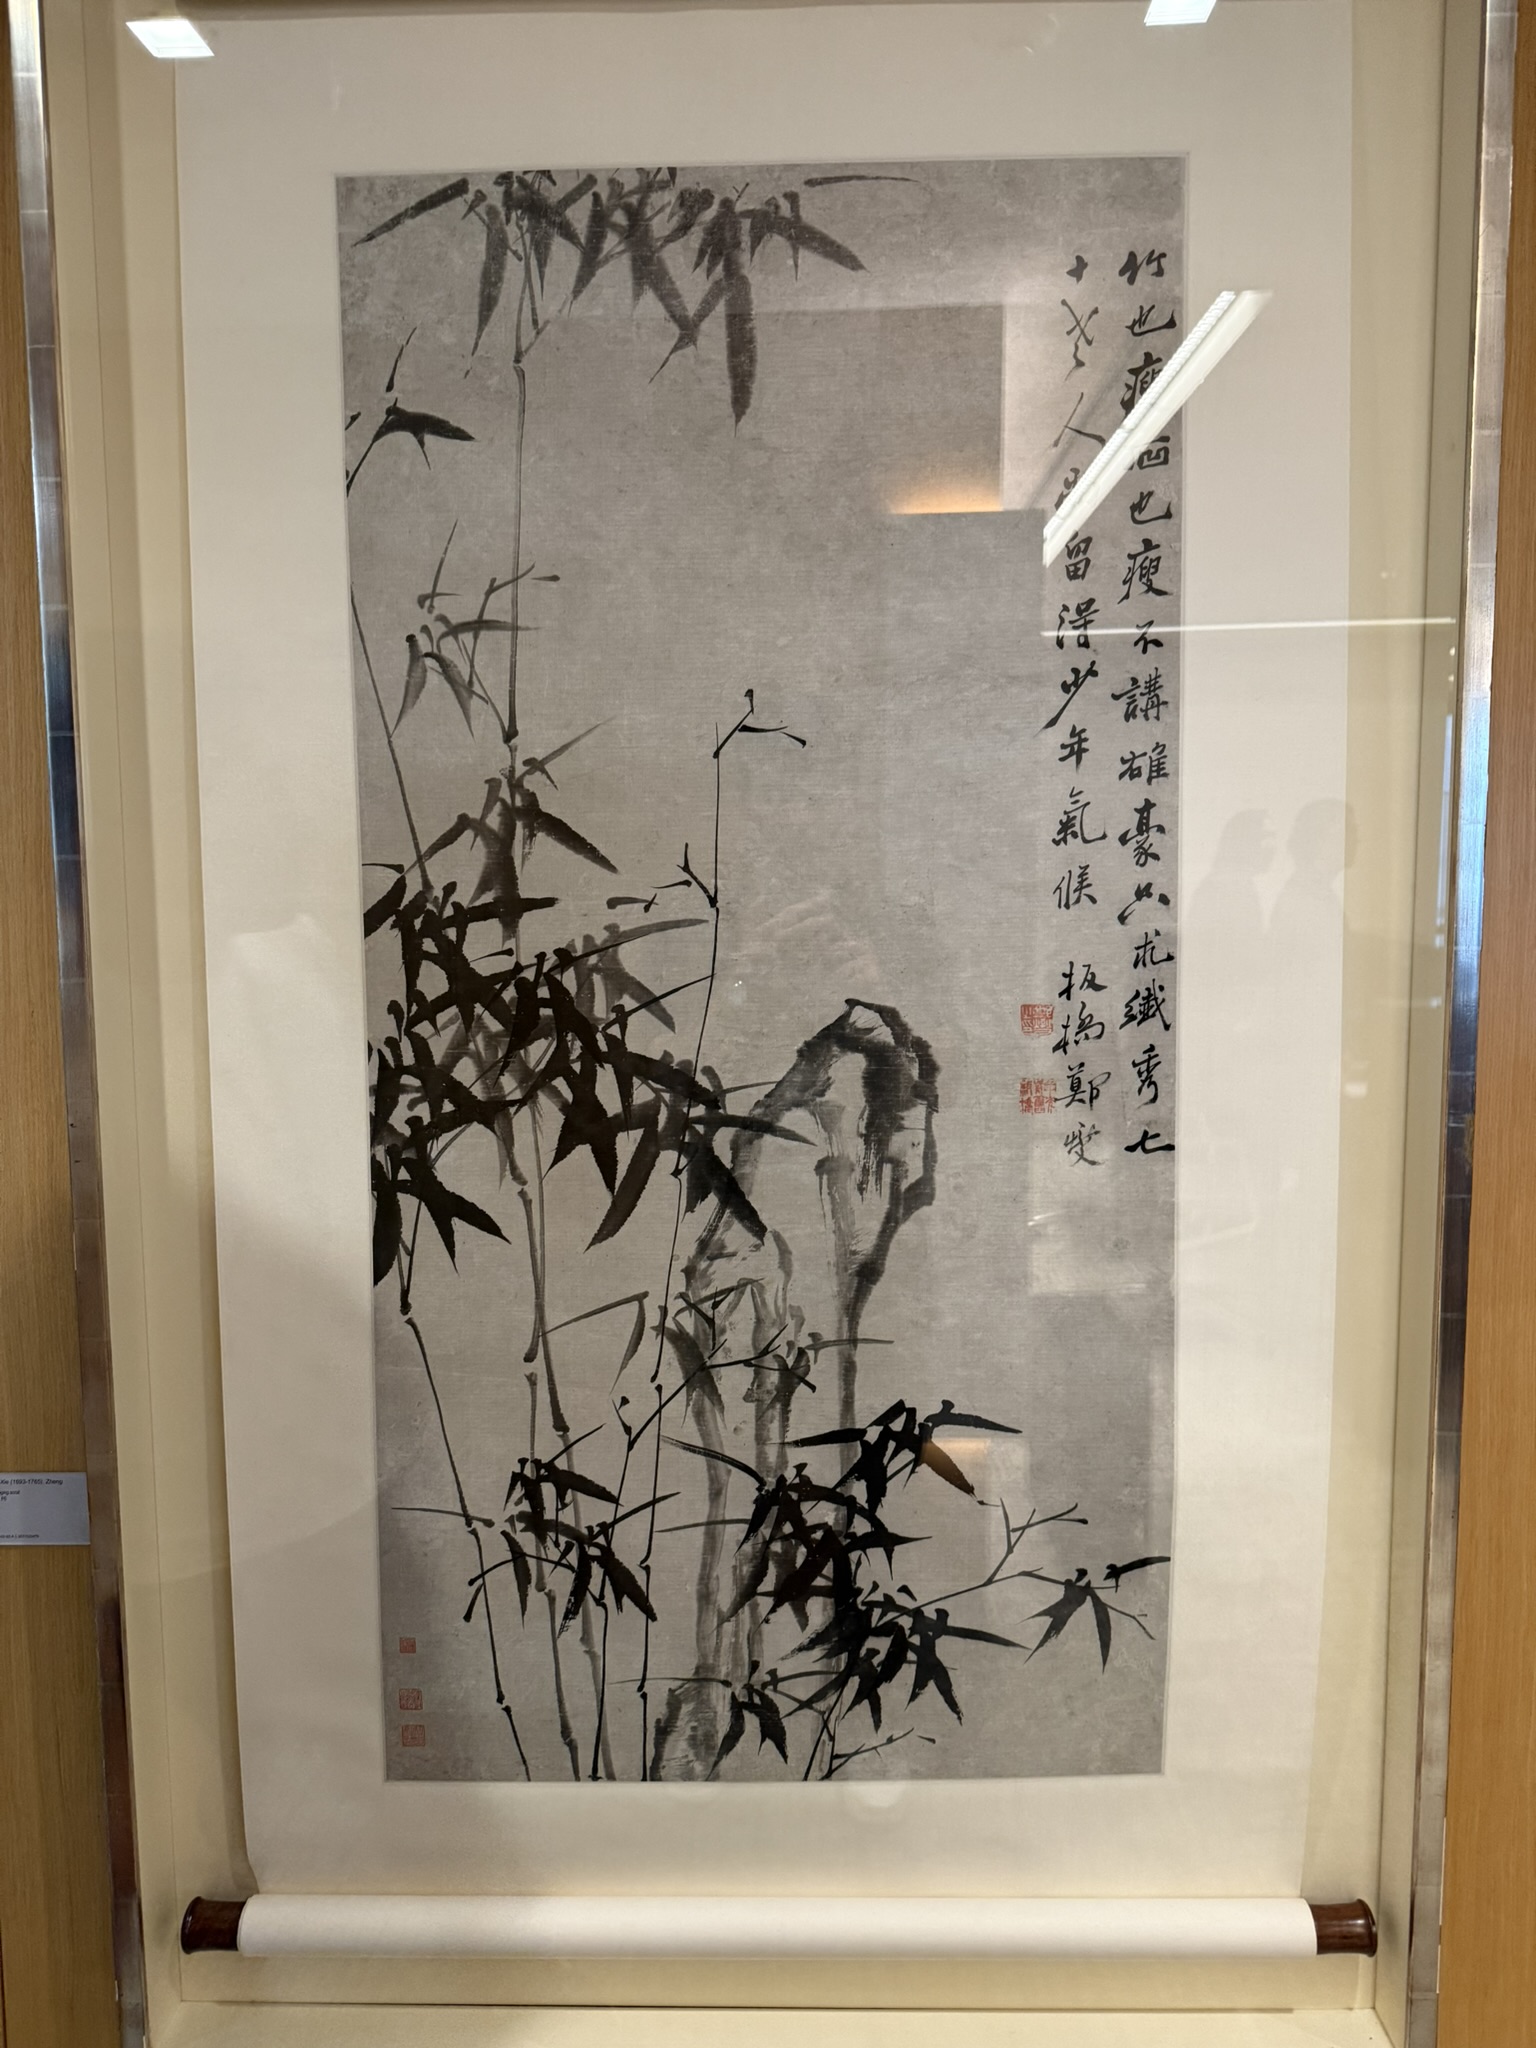 竹也瘦石也瘦不講雄豪只求纖秀七
十老人 留得少年氣候 板橋鄭燮
Xie (1693-1765), Zheng